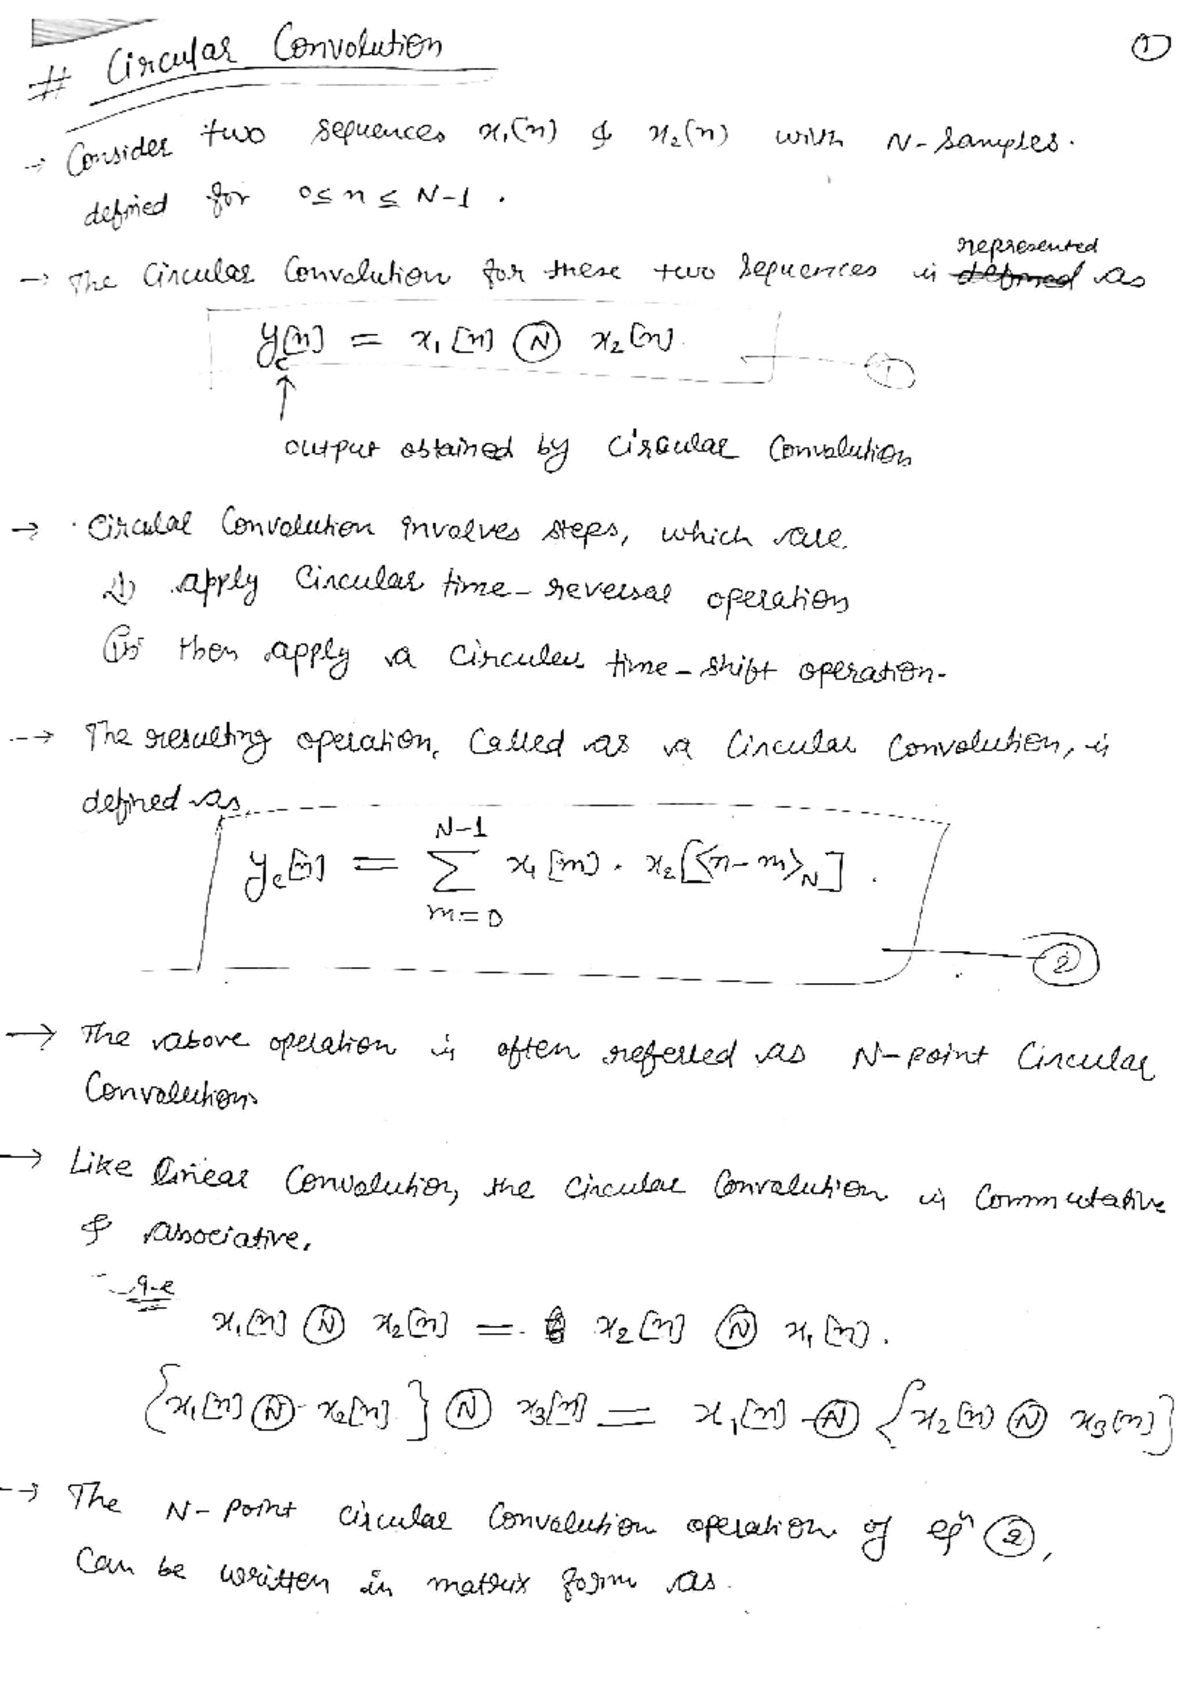 ①
# Circular Convolution
→ Consider two sequences x₁(n) & x₂(n) with N-samples.
defined for 0≤n≤N-1.
represented
→ The Circular Convolution for these two sequences is defined as
y_c[n] = x₁[n] Ⓝ x₂[n]. ①
↑
output obtained by Circular Convolution
→ Circular Convolution involves steps, which are.
(i) apply Circular time-reversal operation
(ii) then apply a Circular time-shift operation.
→ The resulting operation, Called as a Circular Convolution, is
defined as
N-1
y_c[n] = Σ x₁[m]. x₂[<n-m>_N].
m=0
②
→ The above operation is often referred as N-point Circular
Convolution
→ Like linear Convolution, the Circular Convolution is Commutative
& Associative.
i.e
x₁[n] Ⓝ x₂[n] = x₂[n] Ⓝ x₁[n].
{x₁[n] Ⓝ x₂[n]} Ⓝ x₃[n] = x₁[n] Ⓝ {x₂[n] Ⓝ x₃[n]}
→ The N-point circular Convolution operation of eqⁿ ②,
Can be written in matrix form as.